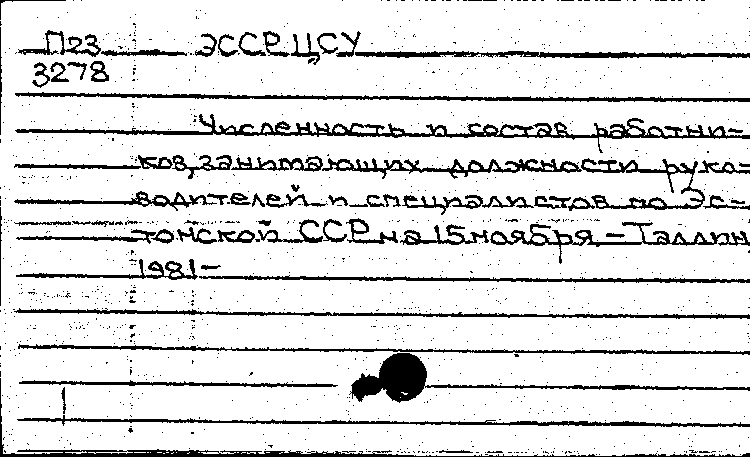 П23 ЭССР. ЦСУ
3278
Численность и состав работни-
ков, занимающих должности руко-
водителей и специалистов по Эс-
тонской ССР на 15 ноября. - Таллин,
1981-